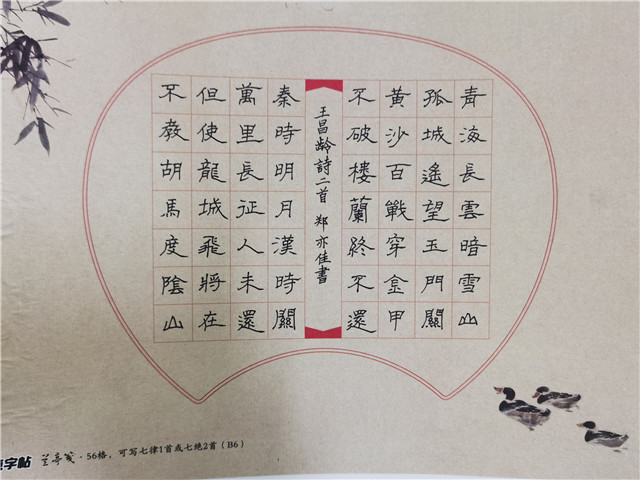 青海長雲暗雪山
孤城遙望玉門關
黃沙百戰穿金甲
不破樓蘭終不還
王昌齡詩二首 鄭亦佳書
秦時明月漢時關
萬里長征人未還
但使龍城飛將在
不教胡馬度陰山
字帖 兰亭笺·56格，可写七律1首或七绝2首（B6）